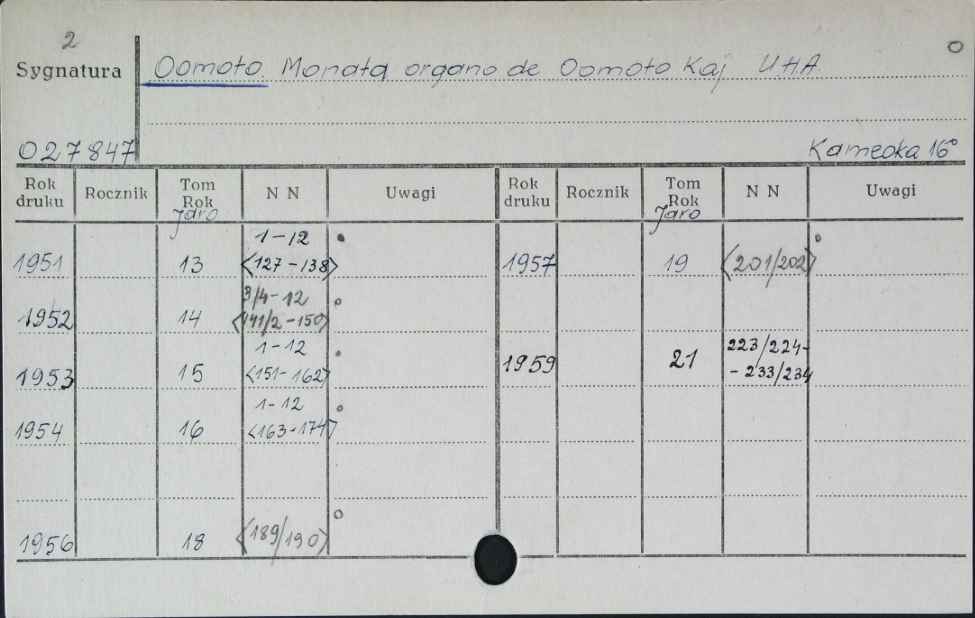 2
Sygnatura Oomoto. Monata organo de Oomoto Kaj UHA
027847 Kameoka 16°
Rok druku Rocznik Tom Rok Jaro N N Uwagi Rok druku Rocznik Tom Rok Jaro N N Uwagi
1951 13 1-12 <127-138> 1957 19 <201/202>
1952 14 3/4-12 <141/2-150>
1953 15 1-12 <151-162> 1959 21 223/224- - 233/234
1954 16 1-12 <163-174>
1956 18 <189/190>